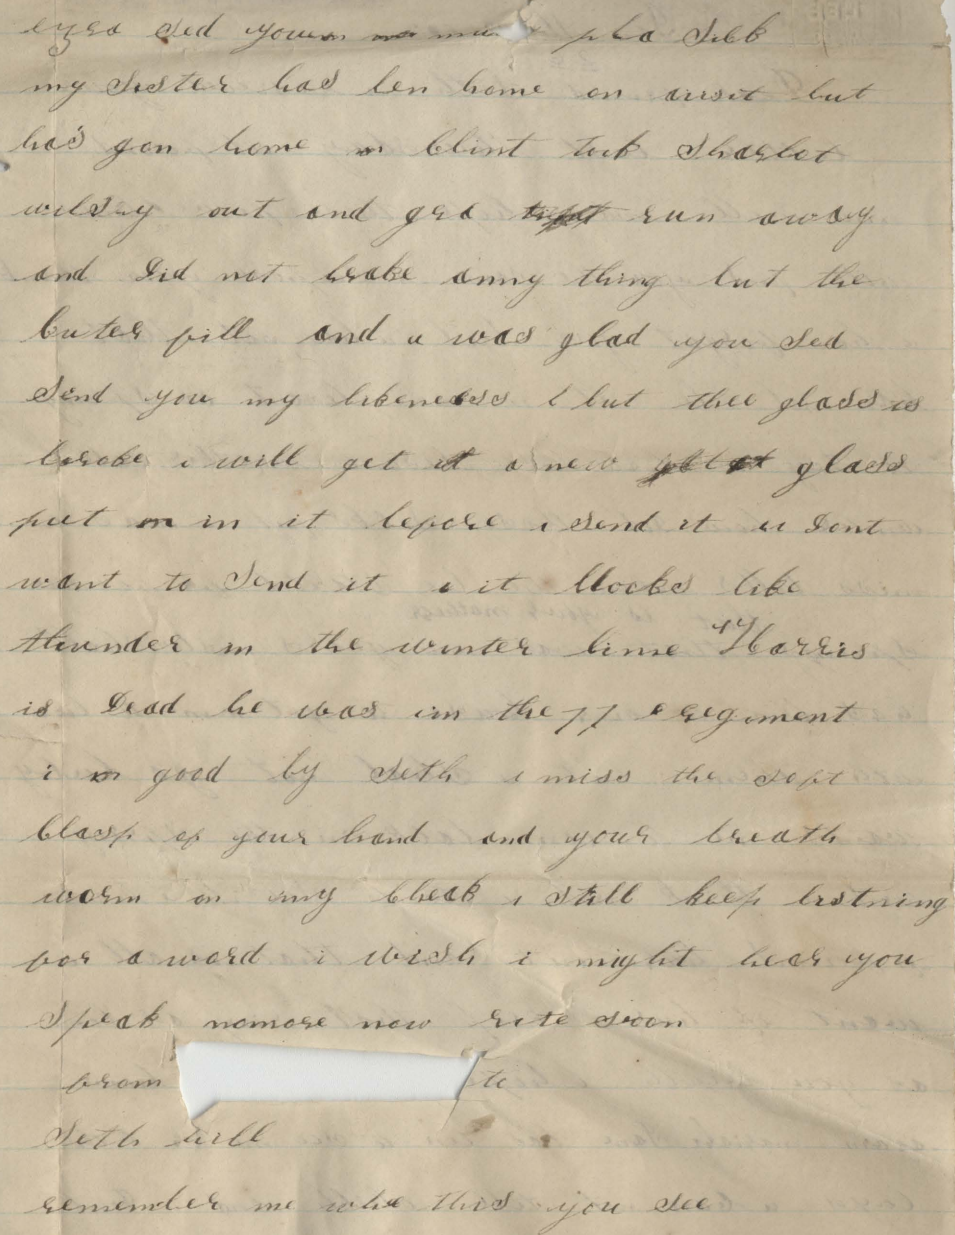 sed your
my Sister has ben home on avisit but
has gon home Clint tuk Sharlot
wilsey out and gra run away
and Did not brake anny thing but the
buter pill and i was glad you Sed
Send you my likeness i but thee glass is
brake i will get a new glass
put in it before i Send it i Dont
want to Send it i it llooks like
thunder in the winter time Harris
is Dead he was im the 77 regiment
i good by Seth i miss the soft
Clasp of your hand and your breath
worm on my Cheak i Still keep listning
for a word i wish i might hear you
Speak nomore now rite soon
from to
Seth
remember me whe this you See